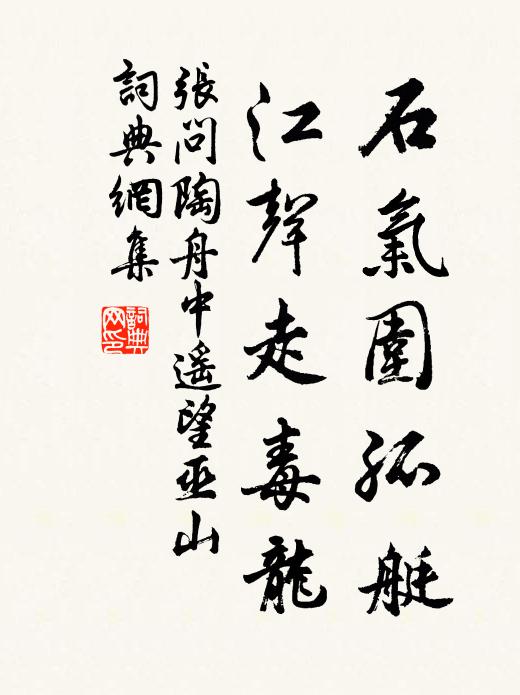 石氣圍孤艇
江聲走毒龍
張問陶舟中遥望巫山
詞典網集
詞典网印